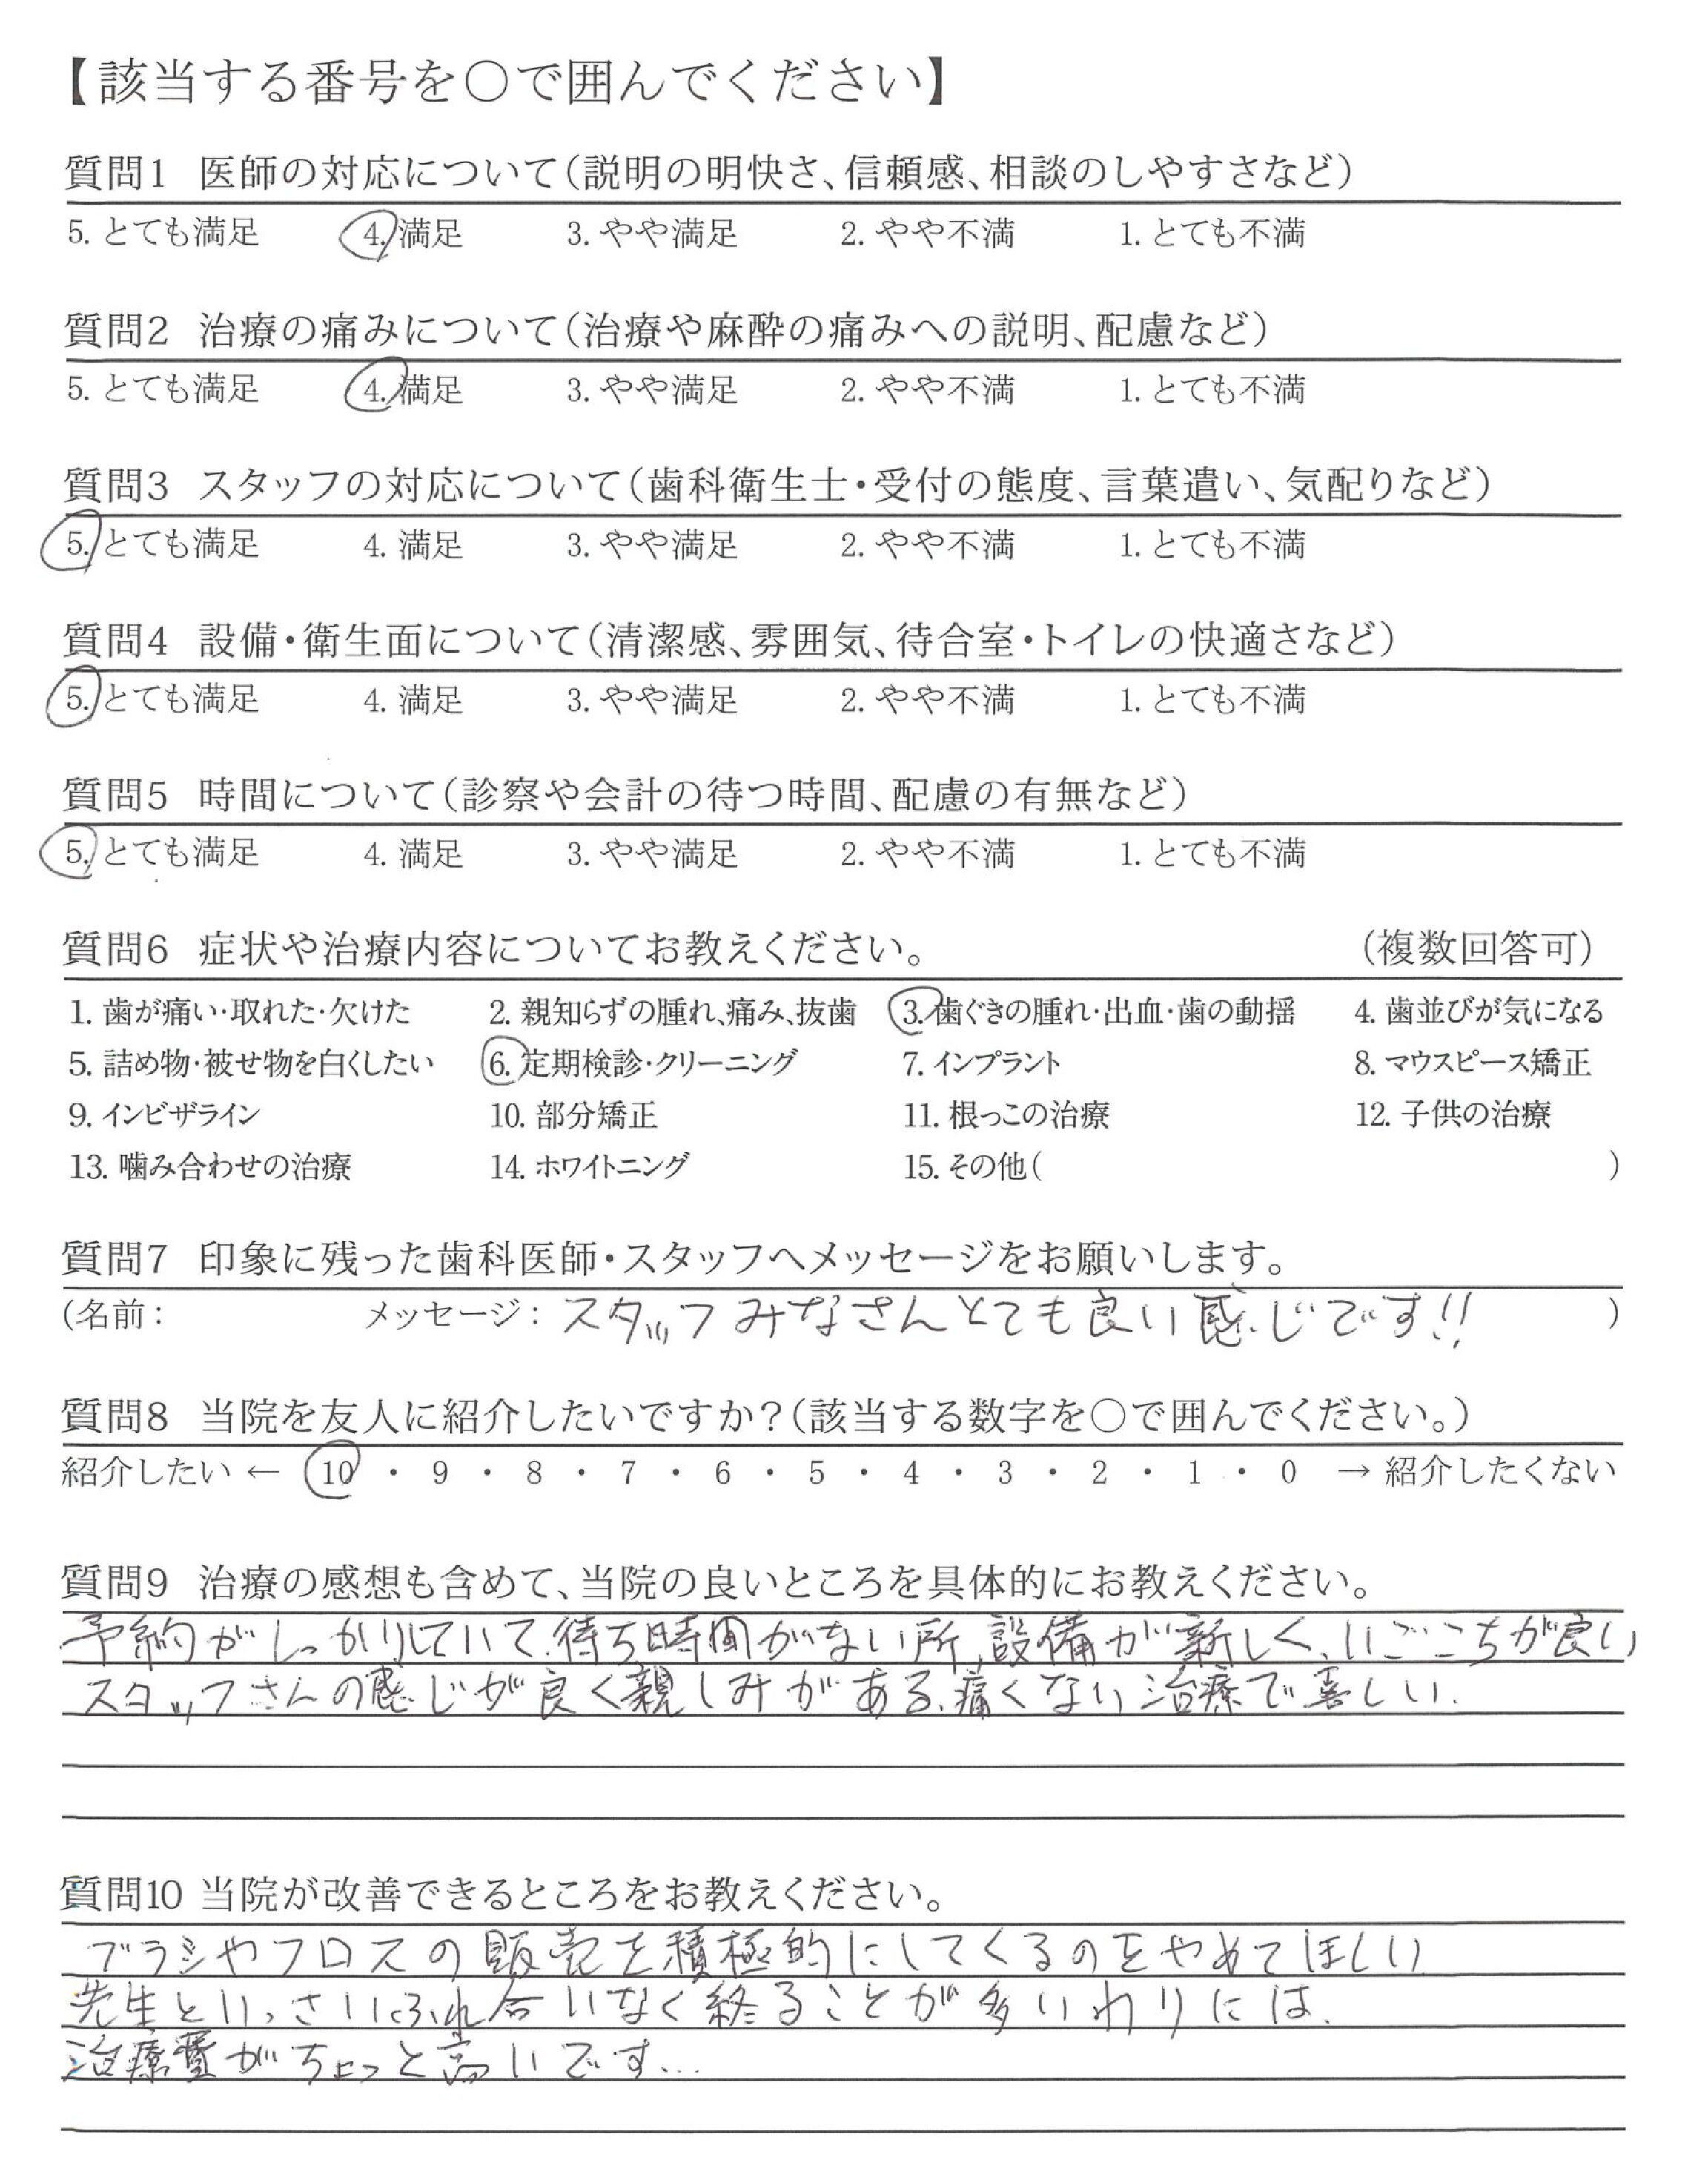 【該当する番号を○で囲んでください】
質問1 医師の対応について(説明の明快さ、信頼感、相談のしやすさなど)
5. とても満足 4. 満足 3. やや満足 2. やや不満 1. とても不満
質問2 治療の痛みについて(治療や麻酔の痛みへの説明、配慮など)
5. とても満足 4. 満足 3. やや満足 2. やや不満 1. とても不満
質問3 スタッフの対応について(歯科衛生士・受付の態度、言葉遣い、気配りなど)
5. とても満足 4. 満足 3. やや満足 2. やや不満 1. とても不満
質問4 設備・衛生面について(清潔感、雰囲気、待合室・トイレの快適さなど)
5. とても満足 4. 満足 3. やや満足 2. やや不満 1. とても不満
質問5 時間について(診察や会計の待つ時間、配慮の有無など)
5. とても満足 4. 満足 3. やや満足 2. やや不満 1. とても不満
質問6 症状や治療内容についてお教えください。 (複数回答可)
1. 歯が痛い・取れた・欠けた 2. 親知らずの腫れ、痛み、抜歯 3. 歯ぐきの腫れ・出血・歯の動揺 4. 歯並びが気になる
5. 詰め物・被せ物を白くしたい 6. 定期検診・クリーニング 7. インプラント 8. マウスピース矯正
9. インビザライン 10. 部分矯正 11. 根っこの治療 12. 子供の治療
13. 噛み合わせの治療 14. ホワイトニング 15. その他( )
質問7 印象に残った歯科医師・スタッフへメッセージをお願いします。
(名前: メッセージ: スタッフみなさんとても良い感じです!! )
質問8 当院を友人に紹介したいですか?(該当する数字を○で囲んでください。)
紹介したい ← 10 ・ 9 ・ 8 ・ 7 ・ 6 ・ 5 ・ 4 ・ 3 ・ 2 ・ 1 ・ 0 → 紹介したくない
質問9 治療の感想も含めて、当院の良いところを具体的にお教えください。
予約がしっかりしていて、待ち時間がない所、設備が新しく、いごこちが良い
スタッフさんの感じが良く親しみがある、痛くない治療で喜しい.
質問10 当院が改善できるところをお教えください。
ブラシやフロスの販売を積極的にしてくるのをやめてほしい
先生といっさいふれ合いなく終ることが多いわりには、
治療費がちょっと高いです...